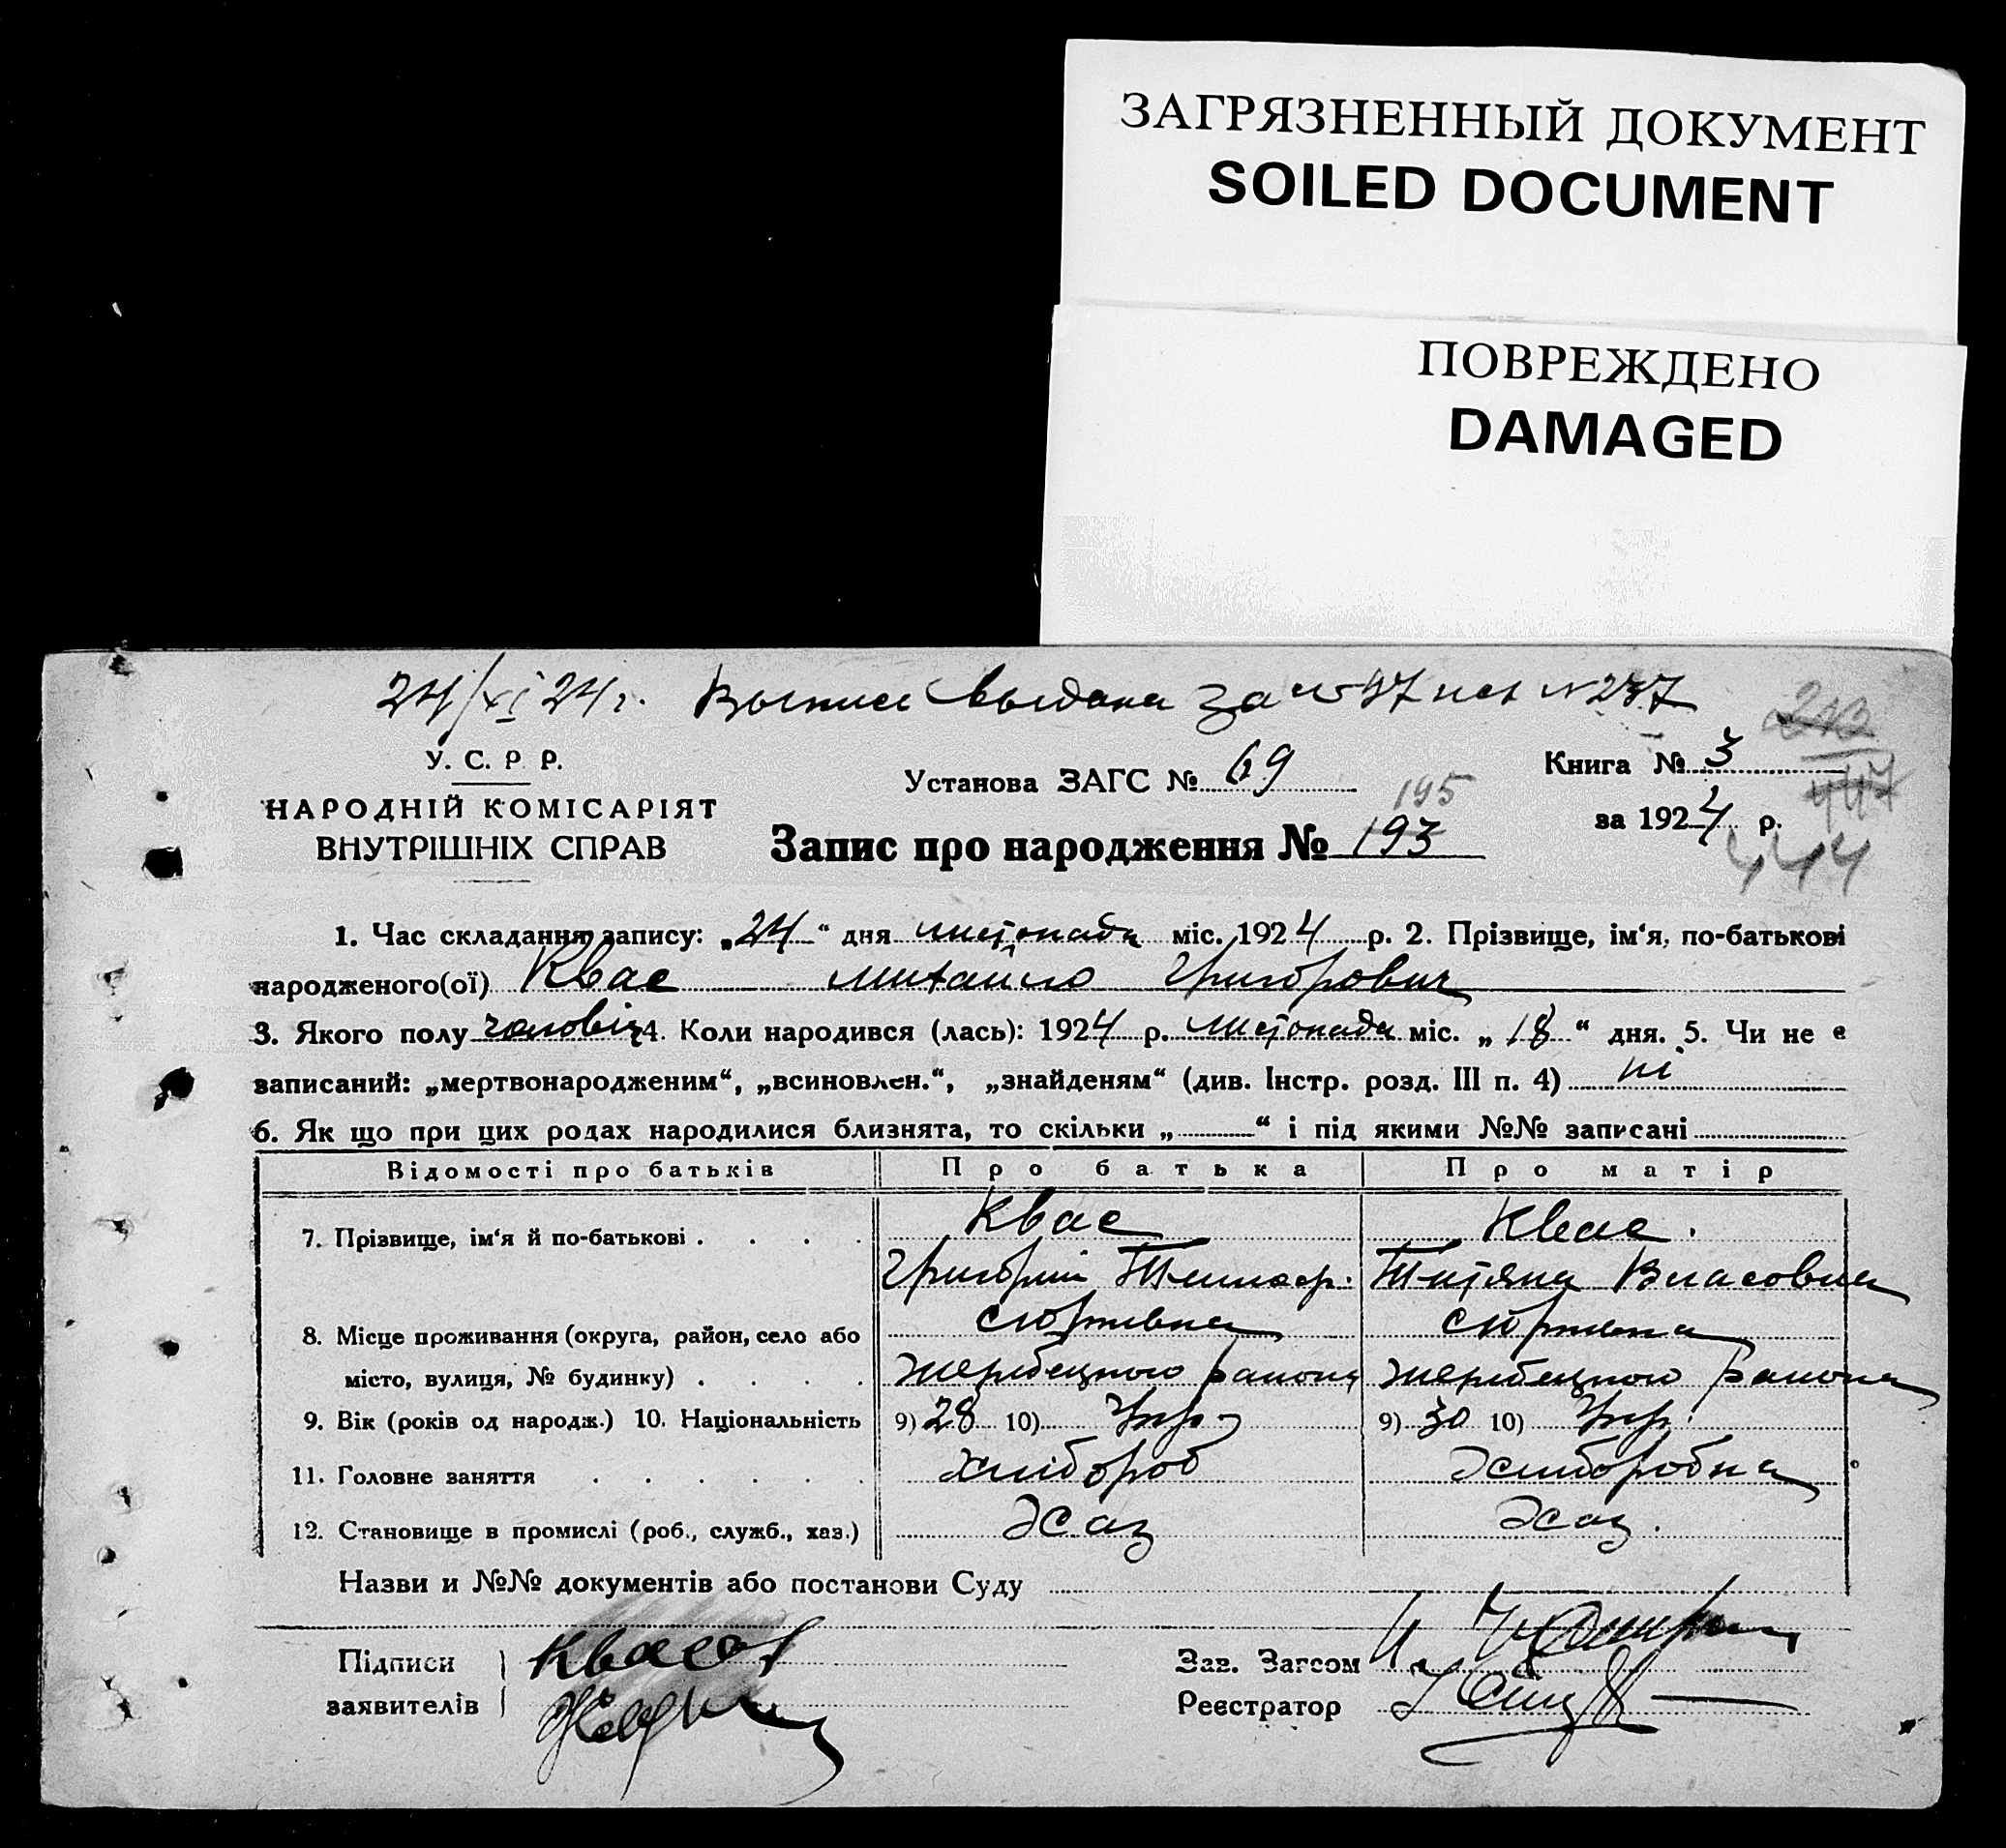 ЗАГРЯЗНЕННЫЙ ДОКУМЕНТ
SOILED DOCUMENT
ПОВРЕЖДЕНО
DAMAGED
24/XI 24 г. Выпись выдана за №
У. С. Р. Р.
НАРОДНІЙ КОМІСАРІЯТ
ВНУТРІШНІХ СПРАВ
Установа ЗАГС № 69
Книга № 3
за 1924 р.
195
Запис про народження № 193
444
1. Час складання запису: „24“ дня листопада міс. 1924 р. 2. Прізвище, ім‘я, по-батькові
народженого(ої) Квас Михайло Григорович
3. Якого полу чоловіч 4. Коли народився (лась): 1924 р. листопада міс. „18“ дня. 5. Чи не є
записаний: „мертвонародженим“, „всиновлен.“, „знайденям“ (див. Інстр. розд. III п. 4) ні
6. Як що при цих родах народилися близнята, то скільки „ “ і під якими №№ записані
Відомості про батьків Про батька Про матір
7. Прізвище, ім‘я й по-батькові Квас Квас.
Григорій Тетяна Власовна
8. Місце проживання (округа, район, село або
місто, вулиця, № будинку) Жеребецкого району Жеребецкого района
9. Вік (років од народж.) 10. Національність 9) 28 10) Укр 9) 30 10) Укр.
11. Головне заняття хлібороб хліборобка
12. Становище в промислі (роб., служб., хаз.) хаз хаз.
Назви и №№ документів або постанови Суду
Підписи Квасов Зав. Загсом
заявителів Реєстратор